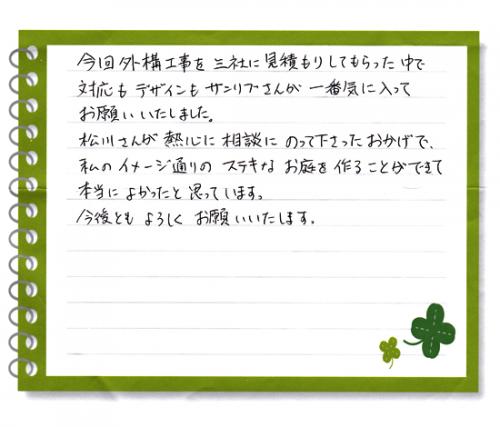 今回外構工事を三社に見積もりしてもらった中で
対応もデザインもサンリブさんが一番気に入って
お願いいたしました。
松川さんが熱心に相談にのって下さったおかげで、
私のイメージ通りのステキなお庭を作ることができて
本当によかったと思っています。
今後ともよろしくお願いいたします。